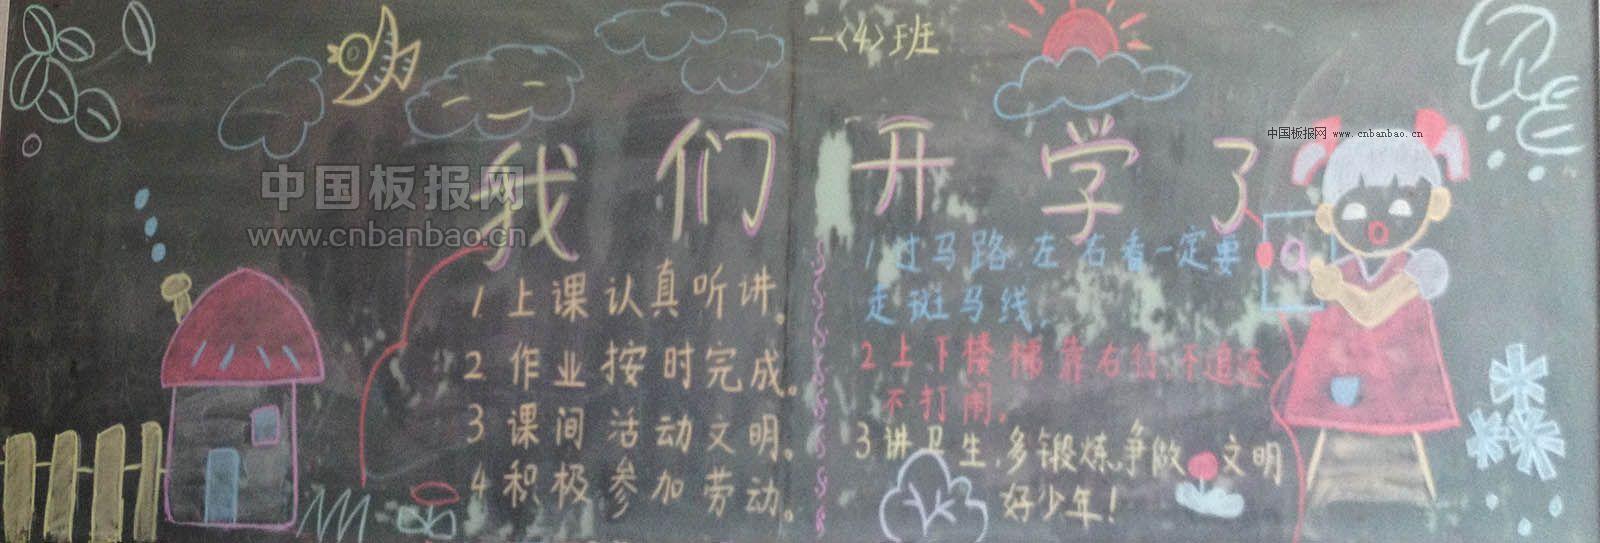 一<4>班
我们开学了
中国板报网 www.cnbanbao.cn
中国板报网
www.cnbanbao.cn
1. 上课认真听讲。
2 作业按时完成。
3 课间活动文明。
4 积极参加劳动。
1 过马路.左右看一定要
走斑马线.
2 上下楼梯靠右行不追逐
不打闹.
3 讲卫生.多锻炼.争做文明
好少年!